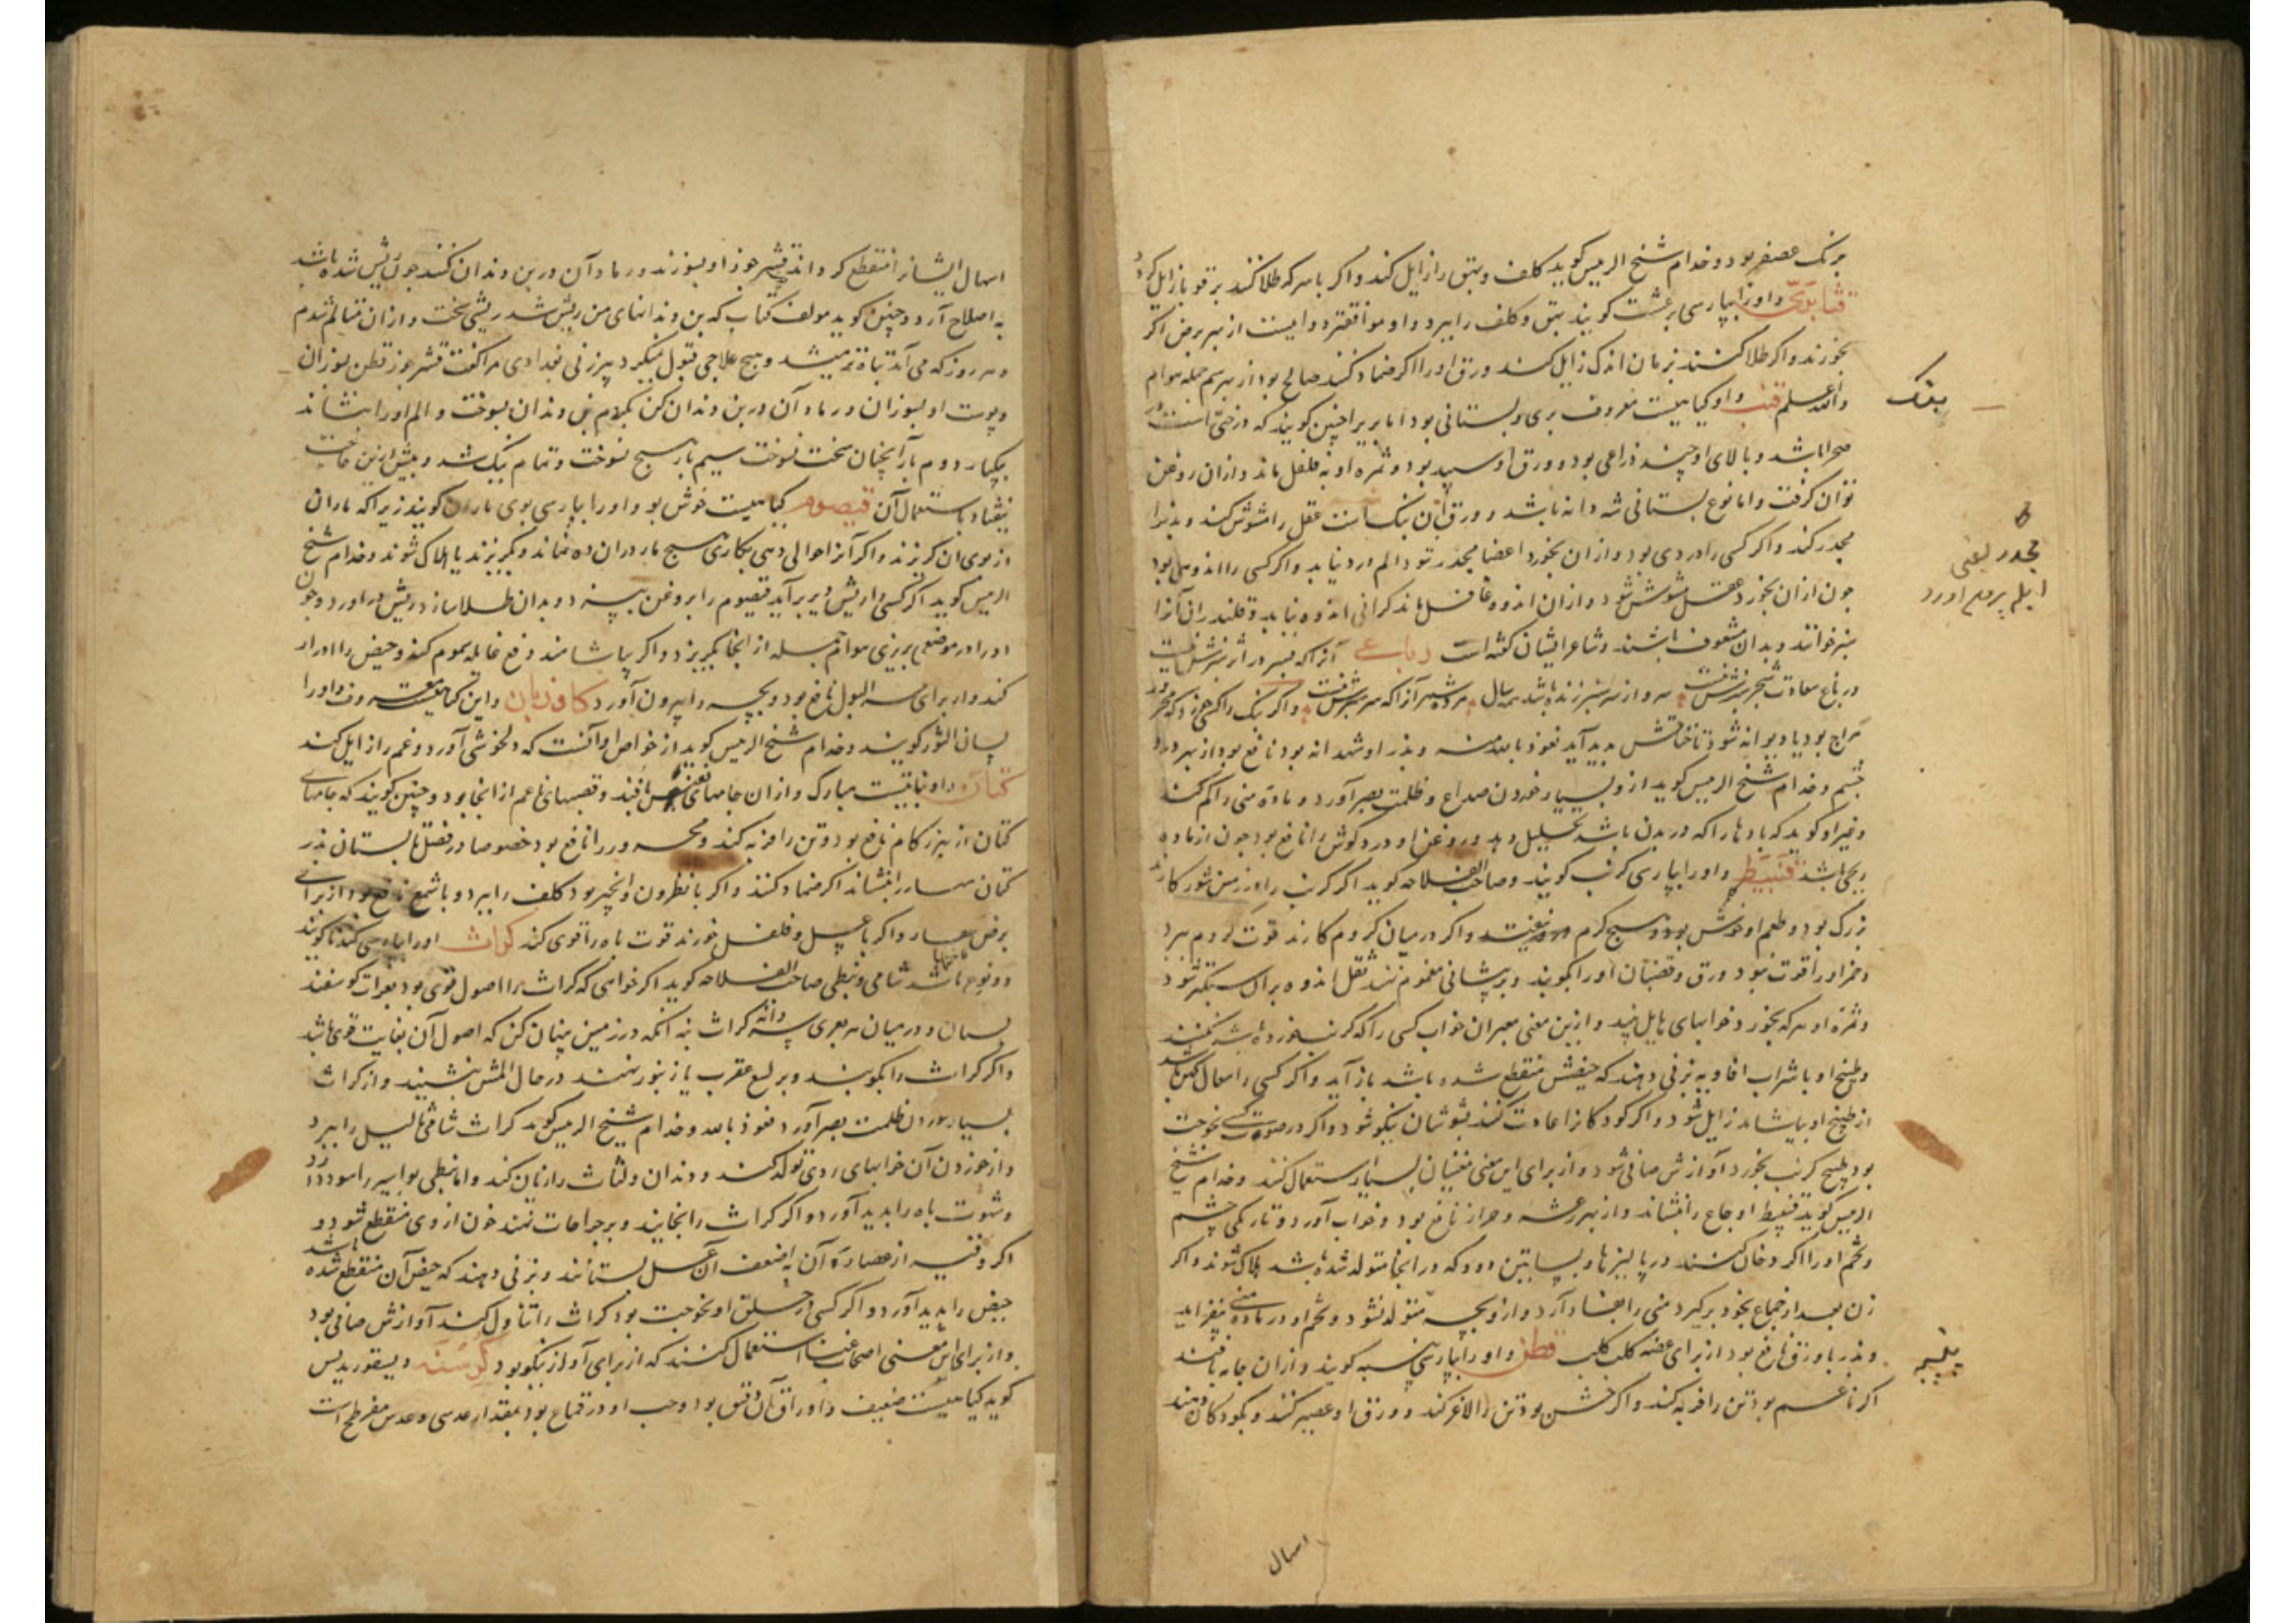 برنک عصفر بود و خدام شیخ الرییس کوید کلف و بهق را زایل کند و اکر با سرکه طلا کنند بر قوبا زایل کرد
واورا بپارسی کویند بهق و کلف را ببرد و او دواییست از بهر برص اکر
بخورند و اکر طلا کنند بزمان اندک زایل کند و ورق اورا اکر ضماد کنند صالح بود از بهر سم جمله هوام
والله اعلم قنب و او کیاهیست معروف بری و بستانی بود اما بری را چنین کویند که درختی است
صحرا باشد و بالای او چند ذراعی بود و ورق او سپید بود و ثمره او به فلفل ماند و ازان روغن
توان کرفت و اما نوع بستانی شه دانه باشد و ورق آن بنک است عقل را مشوش کند و بذرا
مجدر کند و اکر کسی را دردی بود و ازان بخورد اعضا مجدر شود الم درد نیابد و اکر کسی را اندوهی بود
چون ازان بخورد عقل مشوش شود و ازان اندوه غافل ماند کرانی اندوه نیابد و قلندران آنرا
سبز خوانند و بدان مشعوف باشند و شاعر ایشان کفته است رباعی آنرا که بسر در اثر سبز شکفت
در باغ سعادت شجر سبز شکفت
مزاج بود یا دیوانه شود یا خناقش پدید آید نعوذ بالله منه و بذر او شهدانه بود نافع بود از بهر درد
چشم و خدام شیخ الرییس کوید ازو بسیار خوردن صداع و ظلمت بصر آورد و ماده منی را کم کند
و غیر او کوید که بادها را که در بدن باشد تحلیل دهد و روغن او درد کوش را نافع بود چون از ماده
ریحی باشد قنبیط و اورا بپارسی کرنب کویند و صاحب الفلاحه کوید اکر کرنب را در زمین شور کارند
بزرک بود و طعم او خوش بود و هیچ کرم درو نیفتد و اکر در میان کروم کارند قوت کروم ببرد
و خمر اورا قوت نبود و ورق و قضبان اورا بکوبند و بر پیشانی مغموم نهند ثقل اندوه بر آن سبکتر شود
و ثمره او هر که بخورد خوابهای هایل بیند و ازین معنی معبران خواب کسی را که کرنب خورده باشد نکنند
و طبیخ او با شراب افاویه بزنی دهند که حیضش منقطع شده باشد باز آید و اکر کسی را سعال کهن باشد
از طبیخ او بیاشامد زایل شود و اکر کودکانرا عادت کنند نیکو شود و اکر در صوت کسی بحوحت
بود طبیخ کرنب بخورد آوازش صافی شود و از برای این معنی مغنیان بسیار استعمال کنند و خدام شیخ
الرییس کوید قنبیط اوجاع را بنشاند و از بهر رعشه نافع بود و خواب آورد و تاریکی چشم
و تخم اورا اکر دخان کنند در پالیزها و بساتین دود که در انجا متولد شده باشد هلاک شوند و اکر
زن بعد از جماع بخود برکیرد منی را بفساد آرد و ازو بچه متولد نشود و تخم او در ماده منی بیفزاید
و بذر با ورق نافع بود از برای عضه کلب کلب قطن و اورا بپارسی پنبه کویند و ازان جامه بافند
اکر ناعم بود تن را فربه کند و اکر خشن بود تن را لاغر کند و ورق او عصیر کنند و بکودکان دهند
اسهال
بنک
مجدر یعنی
پنبه
اسهال ایشانرا منقطع کرداند قشر جوز او بسوزند و رماد آن در بن دندان کنند چون ریش شده باشد
به اصلاح آرد و چنین کوید مولف کتاب که بن دندانهای من ریش شد ریشی سخت و ازان متالم شدم
و هر روز که می آمد تباه تر میشد و هیچ علاجی قبول نمیکرد پیرزنی بغدادی مرا کفت قشر جوز قطن بسوزان
و پوست او بسوزان و رماد آن در بن دندان کن بکردم بن دندان بسوخت و الم اورا بنشاند
بیکبار دوم بار آنچنان سخت نسوخت سیم بار هیچ نسوخت و تمام نیک شد و بیش ازین حاجت
نیفتاد باستعمال آن قیصوم کیاهیست خوش بو و اورا بپارسی بوی ماران کویند زیرا که ماران
از بوی ان کریزند و اکر آنرا حوالی دهی بکاری هیچ مار دران ده نماند و بکریزند یا هلاک شوند و خدام شیخ
الرییس کوید اکر کسی را ریش دیر برآید قیصوم را بروغن و بدان طلا سازد ریش در آورد و چون
اورا در موضعی بریزی هوام جمله از انجا بکریزد و اکر بیاشامند دفع غایله سموم کند و حیض را ادرار
کند و از برای عسر البول نافع بود و بچه را بیرون آورد کاوزبان و این کیاهیست معروف و اورا
لسان الثور کویند و خدام شیخ الرییس کوید از خواص او آنست که دلخوشی آورد و غم را زایل کند
کتان و او نباتیست مبارک و ازان جامهای نفیس بافند و قصبهای ناعم از انجا بود و چنین کویند که جامهای
کتان از بهر زکام نافع بود و تن را فربه کند و محرور را نافع بود خصوصا در فصل تابستان بذر
کتان را بنشاند اکر ضماد کنند و اکر با نطرون و انجیر بود کلف را ببرد و با شمع نافع بود از برای
برص و اکر با عسل و فلفل خورند قوت باه را قوی کند کراث اورا بپارسی کندنا کویند
و دو نوع باشد شامی و نبطی صاحب الفلاحه کوید اکر خواهی که کراث را اصول قوی بود بعرات کوسفند
بستان و در میان هر بعری سه دانه کراث بنه آنکه در زمین پنهان کن که اصول آن بغایت قوی باشد
و اکر کراث را بکوبند و بر لسع عقرب یا زنبور نهند در حال المش بنشیند و از کراث
بسیار خوردن ظلمت بصر آورد نعوذ بالله و خدام شیخ الرییس کوید کراث شامی ثالیل را ببرد
و از خوردن آن خوابهای ردی تولد کند و دندان و لثات را زیان کند و اما نبطی بواسیر را سود دارد
و شهوت باه را پدید آورد و اکر کراث را بخایند و بر جراحات نهند خون از وی منقطع شود و
اکر وقیه از عصاره آن به اضعف آن عسل بستانند و بزنی دهند که حیض آن منقطع شده باشد
حیض را پدید آورد و اکر کسی در حلق او بحوحت بود کراث را تناول کند آوازش صافی بود
و از برای این معنی اصحاب غنا استعمال کنند که از برای آواز نیکو بود کرسنه دیسقوریدس
کوید کیاهیست ضعیف و اوراق آن دقیق بود و حب او در قماع بود بمقدار عدسی و عدس مفرطح است